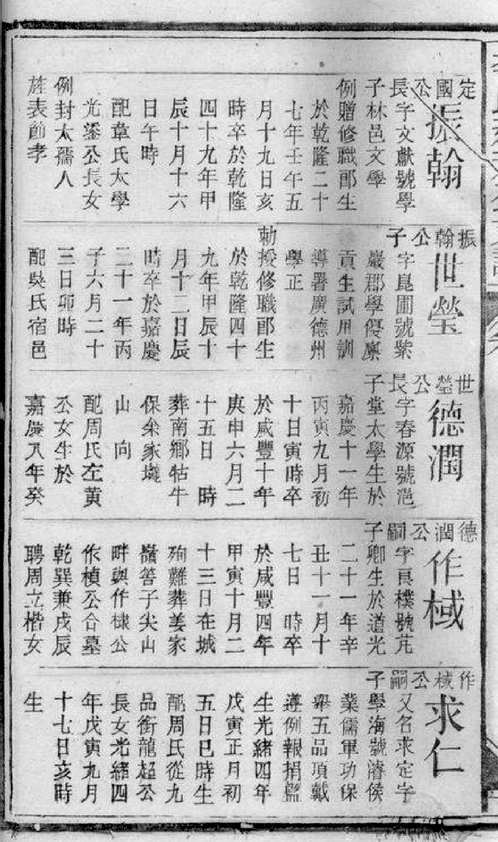 定國公長子
振翰
字文獻號學
林邑文學
例贈修職郎生
於乾隆二十
七年壬午五
月十九日亥
時卒於乾隆
四十九年甲
辰十月十六
日午時
配韋氏太學
光鎏公長女
例封太孺人
旌表節孝
振翰公子
世瑩
字崑圃號紫
巖郡學優廩
貢生試用訓
導署廣德州
學正
勅授修職郎生
於乾隆四十
九年甲辰十
月十二日辰
時卒於嘉慶
二十一年丙
子六月二十
三日卯時
配吳氏宿邑
世瑩公長子
德潤
字春源號浥
堂太學生於
嘉慶十一年
丙寅九月初
十日寅時卒
於咸豐十年
庚申六月二
十五日 時
葬南鄉牯牛
保余家塝
山 向
配周氏左黃
公女生於
嘉慶八年癸
德潤公嗣子
作棫
字貢樸號芃
卿生於道光
二十一年辛
丑十一月十
七日 時卒
於咸豐四年
甲寅十月二
十三日在城
殉難葬姜家
嶺筲子尖山
畔與作棣公
作楨公合墓
乾巽兼戌辰
聘周立楷女
作棫公嗣子
求仁
又名求定字
學海號濬侯
業儒軍功保
舉五品頂戴
遵例報捐監
生光緒四年
戊寅正月初
五日巳時生
配周氏從九
品銜龍超公
長女光緒四
年戊寅九月
十七日亥時
生